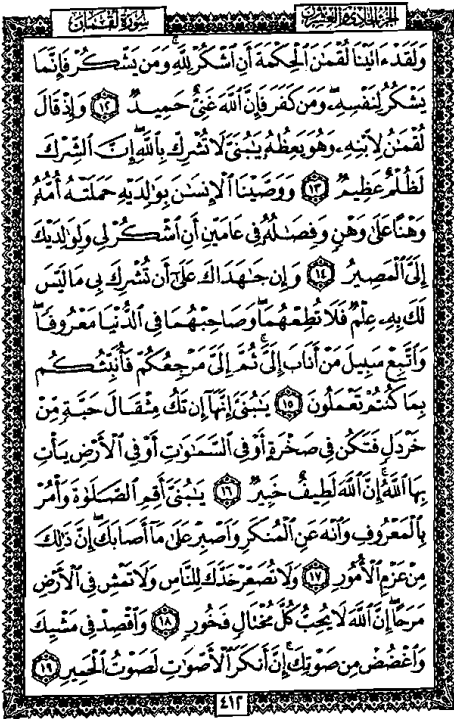 سورة لقمان
الجزء الحادي والعشرون
وَلَقَدْ ءَاتَيْنَا لُقْمَٰنَ ٱلْحِكْمَةَ أَنِ ٱشْكُرْ لِلَّهِ ۚ وَمَن يَشْكُرْ فَإِنَّمَا
يَشْكُرُ لِنَفْسِهِۦ ۖ وَمَن كَفَرَ فَإِنَّ ٱللَّهَ غَنِىٌّ حَمِيدٌ ١٢ وَإِذْ قَالَ
لُقْمَٰنُ لِٱبْنِهِۦ وَهُوَ يَعِظُهُۥ يَٰبُنَىَّ لَا تُشْرِكْ بِٱللَّهِ ۖ إِنَّ ٱلشِّرْكَ
لَظُلْمٌ عَظِيمٌ ١٣ وَوَصَّيْنَا ٱلْإِنسَٰنَ بِوَٰلِدَيْهِ حَمَلَتْهُ أُمُّهُۥ
وَهْنًا عَلَىٰ وَهْنٍ وَفِصَٰلُهُۥ فِى عَامَيْنِ أَنِ ٱشْكُرْ لِى وَلِوَٰلِدَيْكَ
إِلَىَّ ٱلْمَصِيرُ ١٤ وَإِن جَٰهَدَاكَ عَلَىٰٓ أَن تُشْرِكَ بِى مَا لَيْسَ
لَكَ بِهِۦ عِلْمٌ فَلَا تُطِعْهُمَا ۖ وَصَاحِبْهُمَا فِى ٱلدُّنْيَا مَعْرُوفًا ۖ
وَٱتَّبِعْ سَبِيلَ مَنْ أَنَابَ إِلَىَّ ۚ ثُمَّ إِلَىَّ مَرْجِعُكُمْ فَأُنَبِّئُكُم
بِمَا كُنتُمْ تَعْمَلُونَ ١٥ يَٰبُنَىَّ إِنَّهَآ إِن تَكُ مِثْقَالَ حَبَّةٍ مِّنْ
خَرْدَلٍ فَتَكُن فِى صَخْرَةٍ أَوْ فِى ٱلسَّمَٰوَٰتِ أَوْ فِى ٱلْأَرْضِ يَأْتِ
بِهَا ٱللَّهُ ۚ إِنَّ ٱللَّهَ لَطِيفٌ خَبِيرٌ ١٦ يَٰبُنَىَّ أَقِمِ ٱلصَّلَوٰةَ وَأْمُرْ
بِٱلْمَعْرُوفِ وَٱنْهَ عَنِ ٱلْمُنكَرِ وَٱصْبِرْ عَلَىٰ مَآ أَصَابَكَ ۖ إِنَّ ذَٰلِكَ
مِنْ عَزْمِ ٱلْأُمُورِ ١٧ وَلَا تُصَعِّرْ خَدَّكَ لِلنَّاسِ وَلَا تَمْشِ فِى ٱلْأَرْضِ
مَرَحًا ۖ إِنَّ ٱللَّهَ لَا يُحِبُّ كُلَّ مُخْتَالٍ فَخُورٍ ١٨ وَٱقْصِدْ فِى مَشْيِكَ
وَٱغْضُضْ مِن صَوْتِكَ ۚ إِنَّ أَنكَرَ ٱلْأَصْوَٰتِ لَصَوْتُ ٱلْحَمِيرِ ١٩
٤١٢